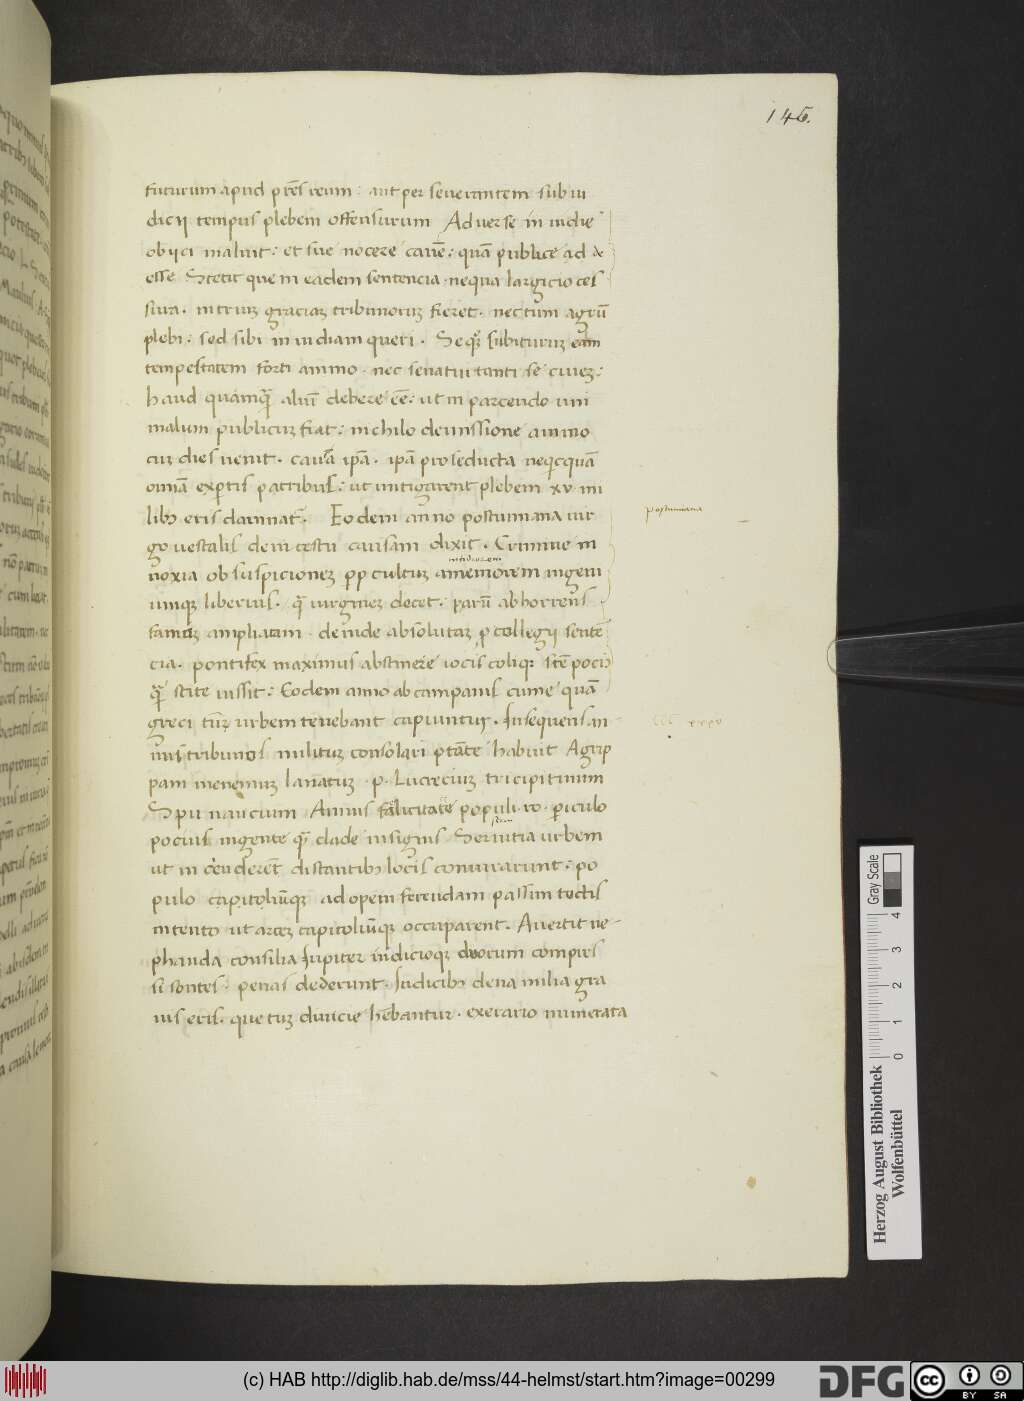 146.
futurum apud p̄res reum : aut per seuerantem sub iu
dicij tempus plebem offensurum Aduerse in uidie
obijci maluit : et sue nocere cau̅e : quā publice ad de
esse Stetit que in eadem sentencia · nequa largicio ces
sura · in truꝫ graciaꝫ tribunoruꝫ fieret · nec tum agrū
plebi : sed sibi in uidiam queri · Se qꝫ subituruꝫ eam
tempestatem forti animo · nec senatui tanti se ciueꝫ :
haud quamqꝫ aliū debere ee̅ : ut in parcendo uni
malum publicuꝫ fiat : nichilo demissione animo
cuꝫ dies uenit · causā ip̄ā · ip̄ā pro se dicta neqcquā
omiā expertis patribus : ut mitigarent plebem xv mi
libꝫ eris damnat̄ · Eodem anno postumiana uir
postumiana
go uestalis de in cestu causam dixit · Crimine in
noxia ob suspicioneꝫ ꝓp cultuꝫ amemorem ingeni
umqꝫ liberius · qꝫ uirgineꝫ decet · parū abhorrens
famaꝫ ampliatam · deinde absolutaꝫ ꝓ collegij sente̅
cia · pontifex maximus abstinere iocis coliqꝫ ste̅ pociꝰ
qꝫ scite iussit : Eodem anno ab campanis cume quā
greci tuꝫ urbem tenebant capiuntur · Insequens an
nus tribunos militum consolari p̄tāte habuit Agrip
pam meneniuꝫ lanatuꝫ · p · Lucreciuꝫ tricipitinum
Spu naucium Annus falicitate populi · ro · periculo
pocius ingente qꝫ clade insignis Seruitia urbem
ut in cenderet distantibꝫ locis coniurarunt : po
pulo capitoliūqꝫ ad opem ferendam passim tectis
intento ut arceꝫ capitoliūqꝫ occuparent · Auertit ne
phanda consilia Iupiter indicioqꝫ duorum compres
si sontes · penas dederunt · Iudicibꝫ dena milia gra
uis eris · que tuꝫ diuicie he̅bantur · ex erario numerata
Gray Scale
0 1 2 3 4
Herzog August Bibliothek
Wolfenbüttel
(c) HAB http://diglib.hab.de/mss/44-helmst/start.htm?image=00299
DFG
cc BY SA